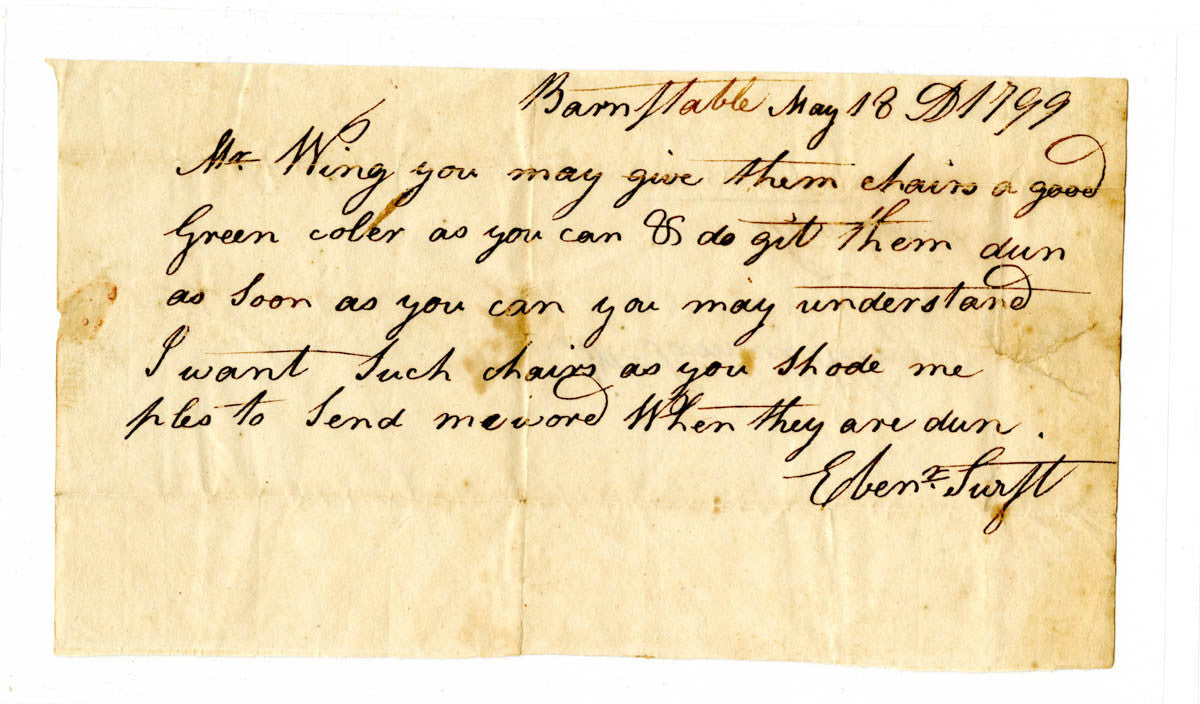 Barnstable May 18 D 1799
Mr. Wing you may give them chairs a good
Green coler as you can & do git them dun
as soon as you can you may understand
I want Such chairs as you Shode me
ples to Send me word When they are dun.
Ebenz. Surft